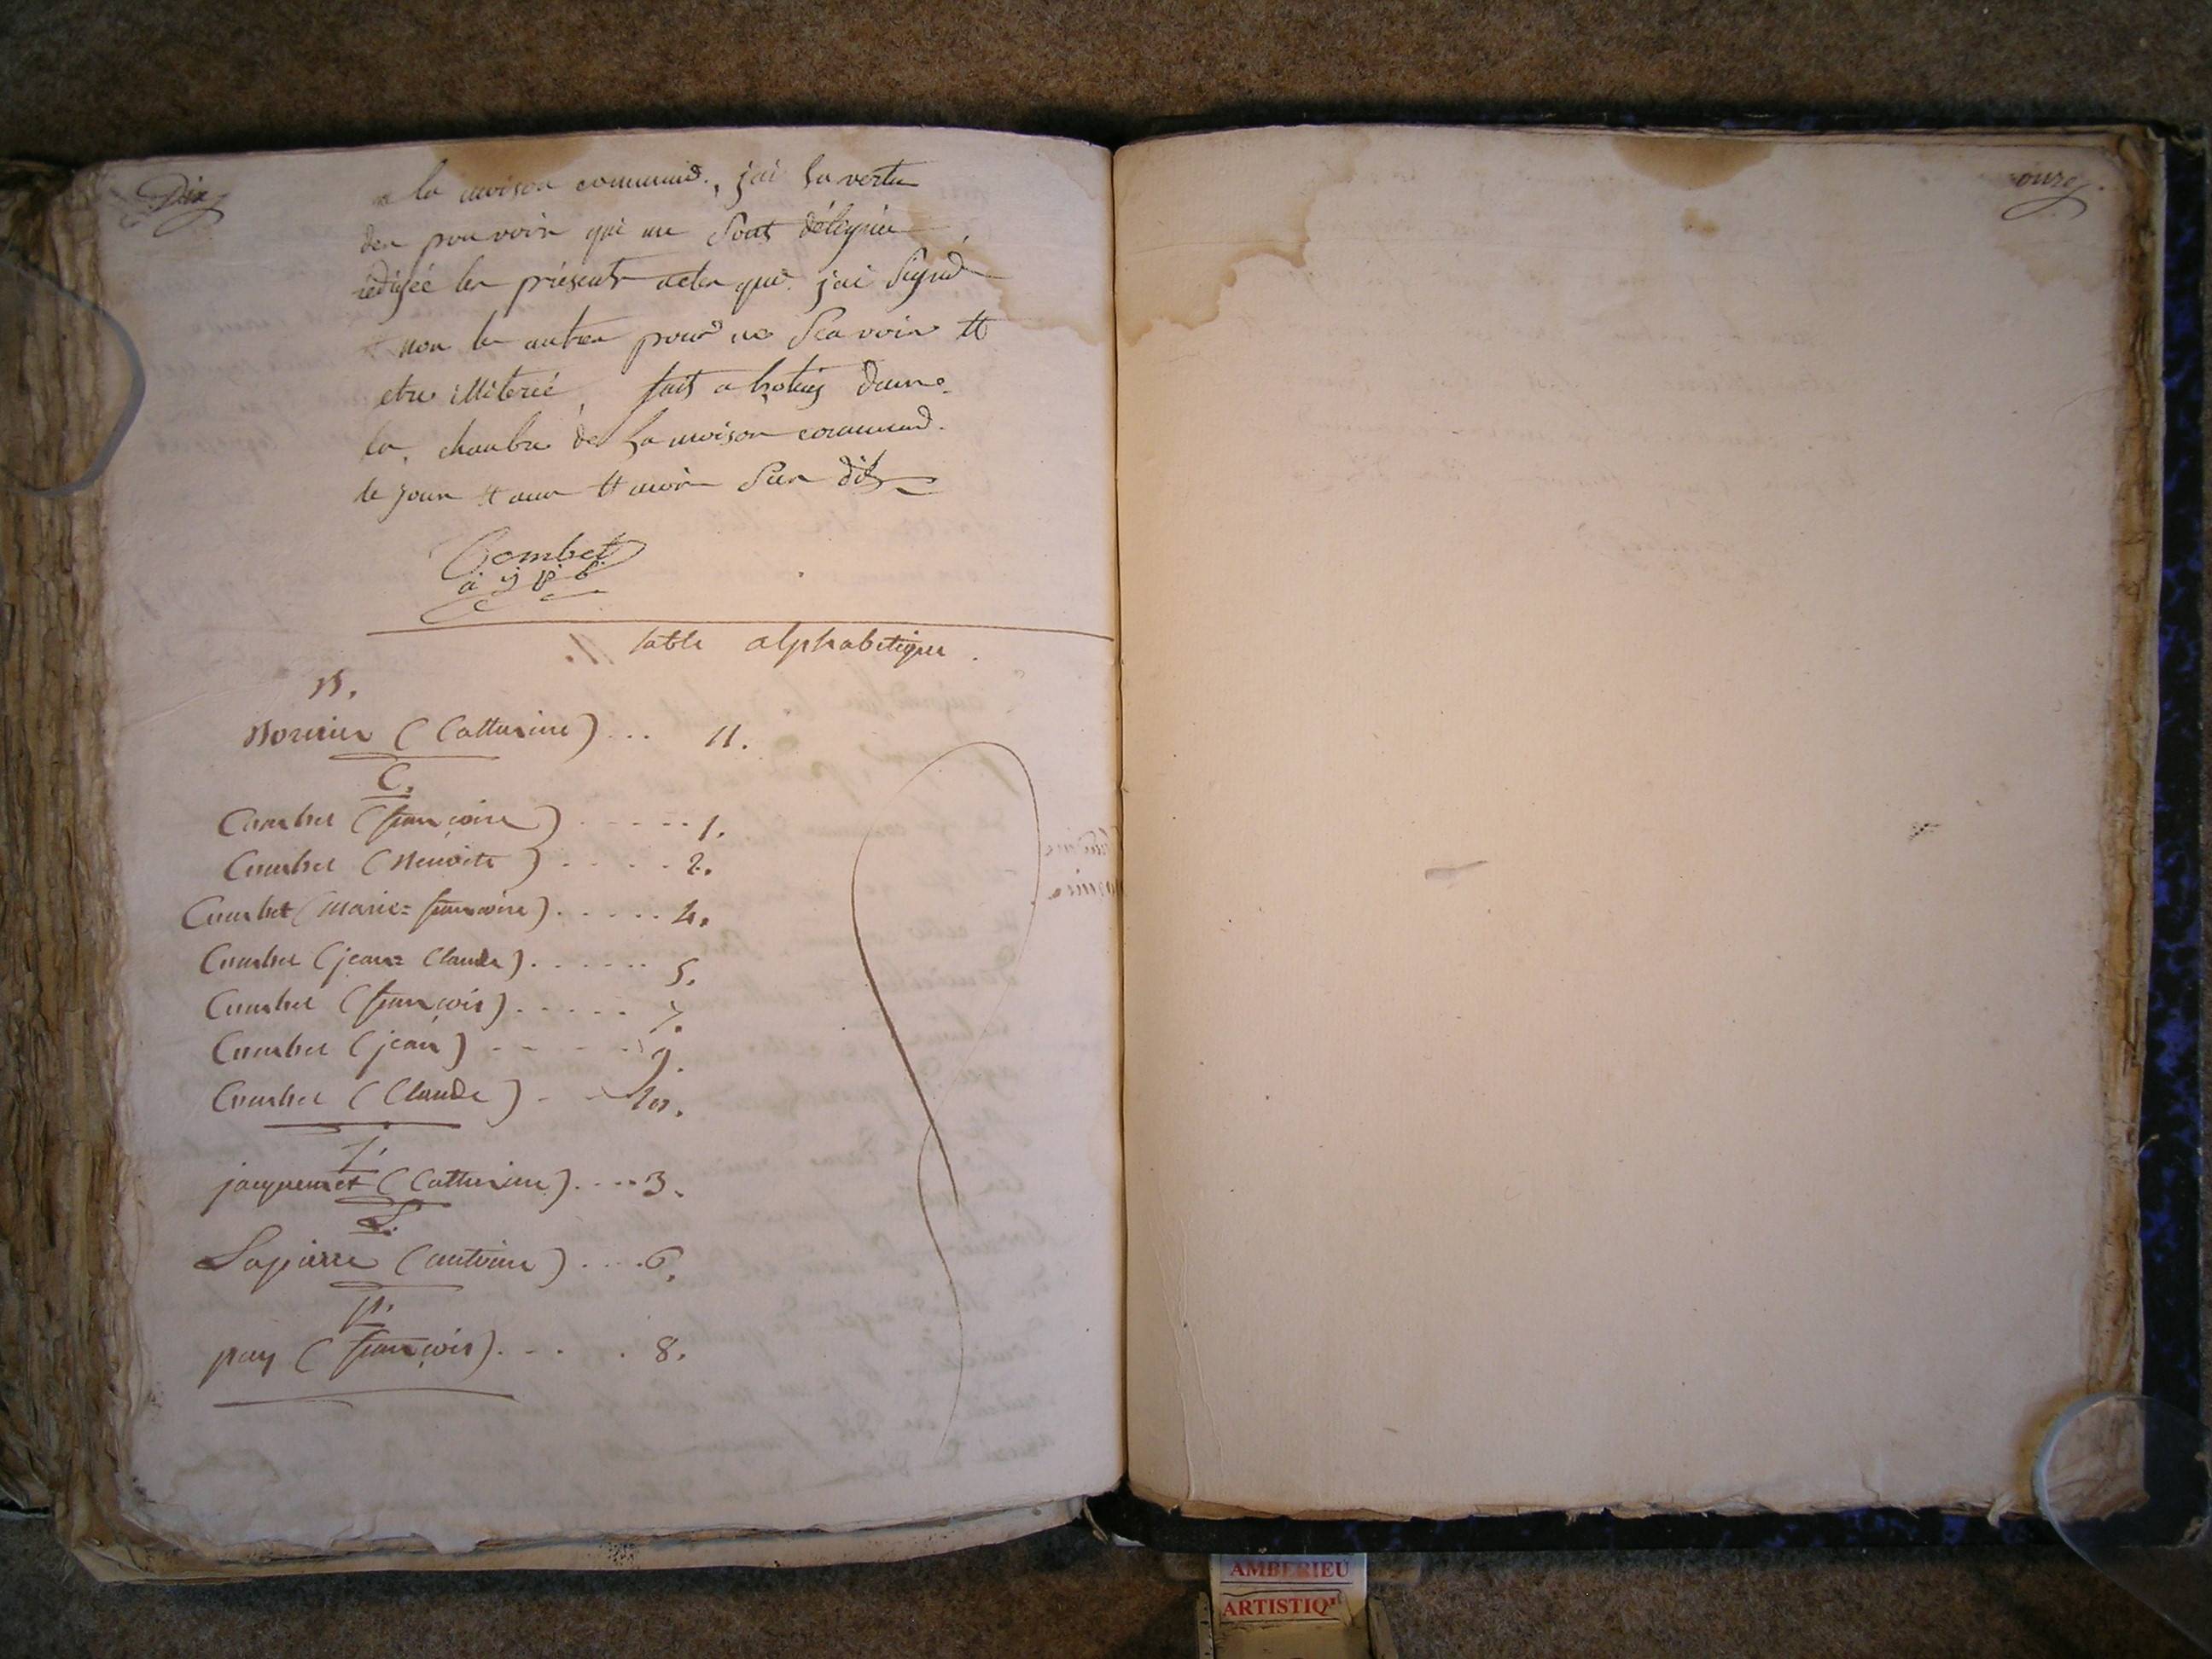 Dix
a la maison commune, jai En vertu
des pouvoir qui me Sont délégués
rédigée les présents actes que jai Signé
et non les autres pour ne Scavoir et
etre illiterée, fait a hotuis dans
la chambre de La maison commune
le jour et an et mois Sus dit
Combet
table alphabetique.
B.
Bornier (Catherine) ... 11.
C.
Combet (françoise) ..... 1.
Combet (Benoite) ..... 2.
Combet (marie=françoise) ..... 4.
Combet (jean=Claude) ...... 5.
Combet (françois) ..... 7.
Combet (jean) ..... 9.
Combet (Claude) .. 10.
J.
jacquemet (Catherine) .... 3.
L.
Lapierre (antoine) .... 6.
p.
pay (françois) .... 8.
onze.
AMBERIEU
ARTISTIQ